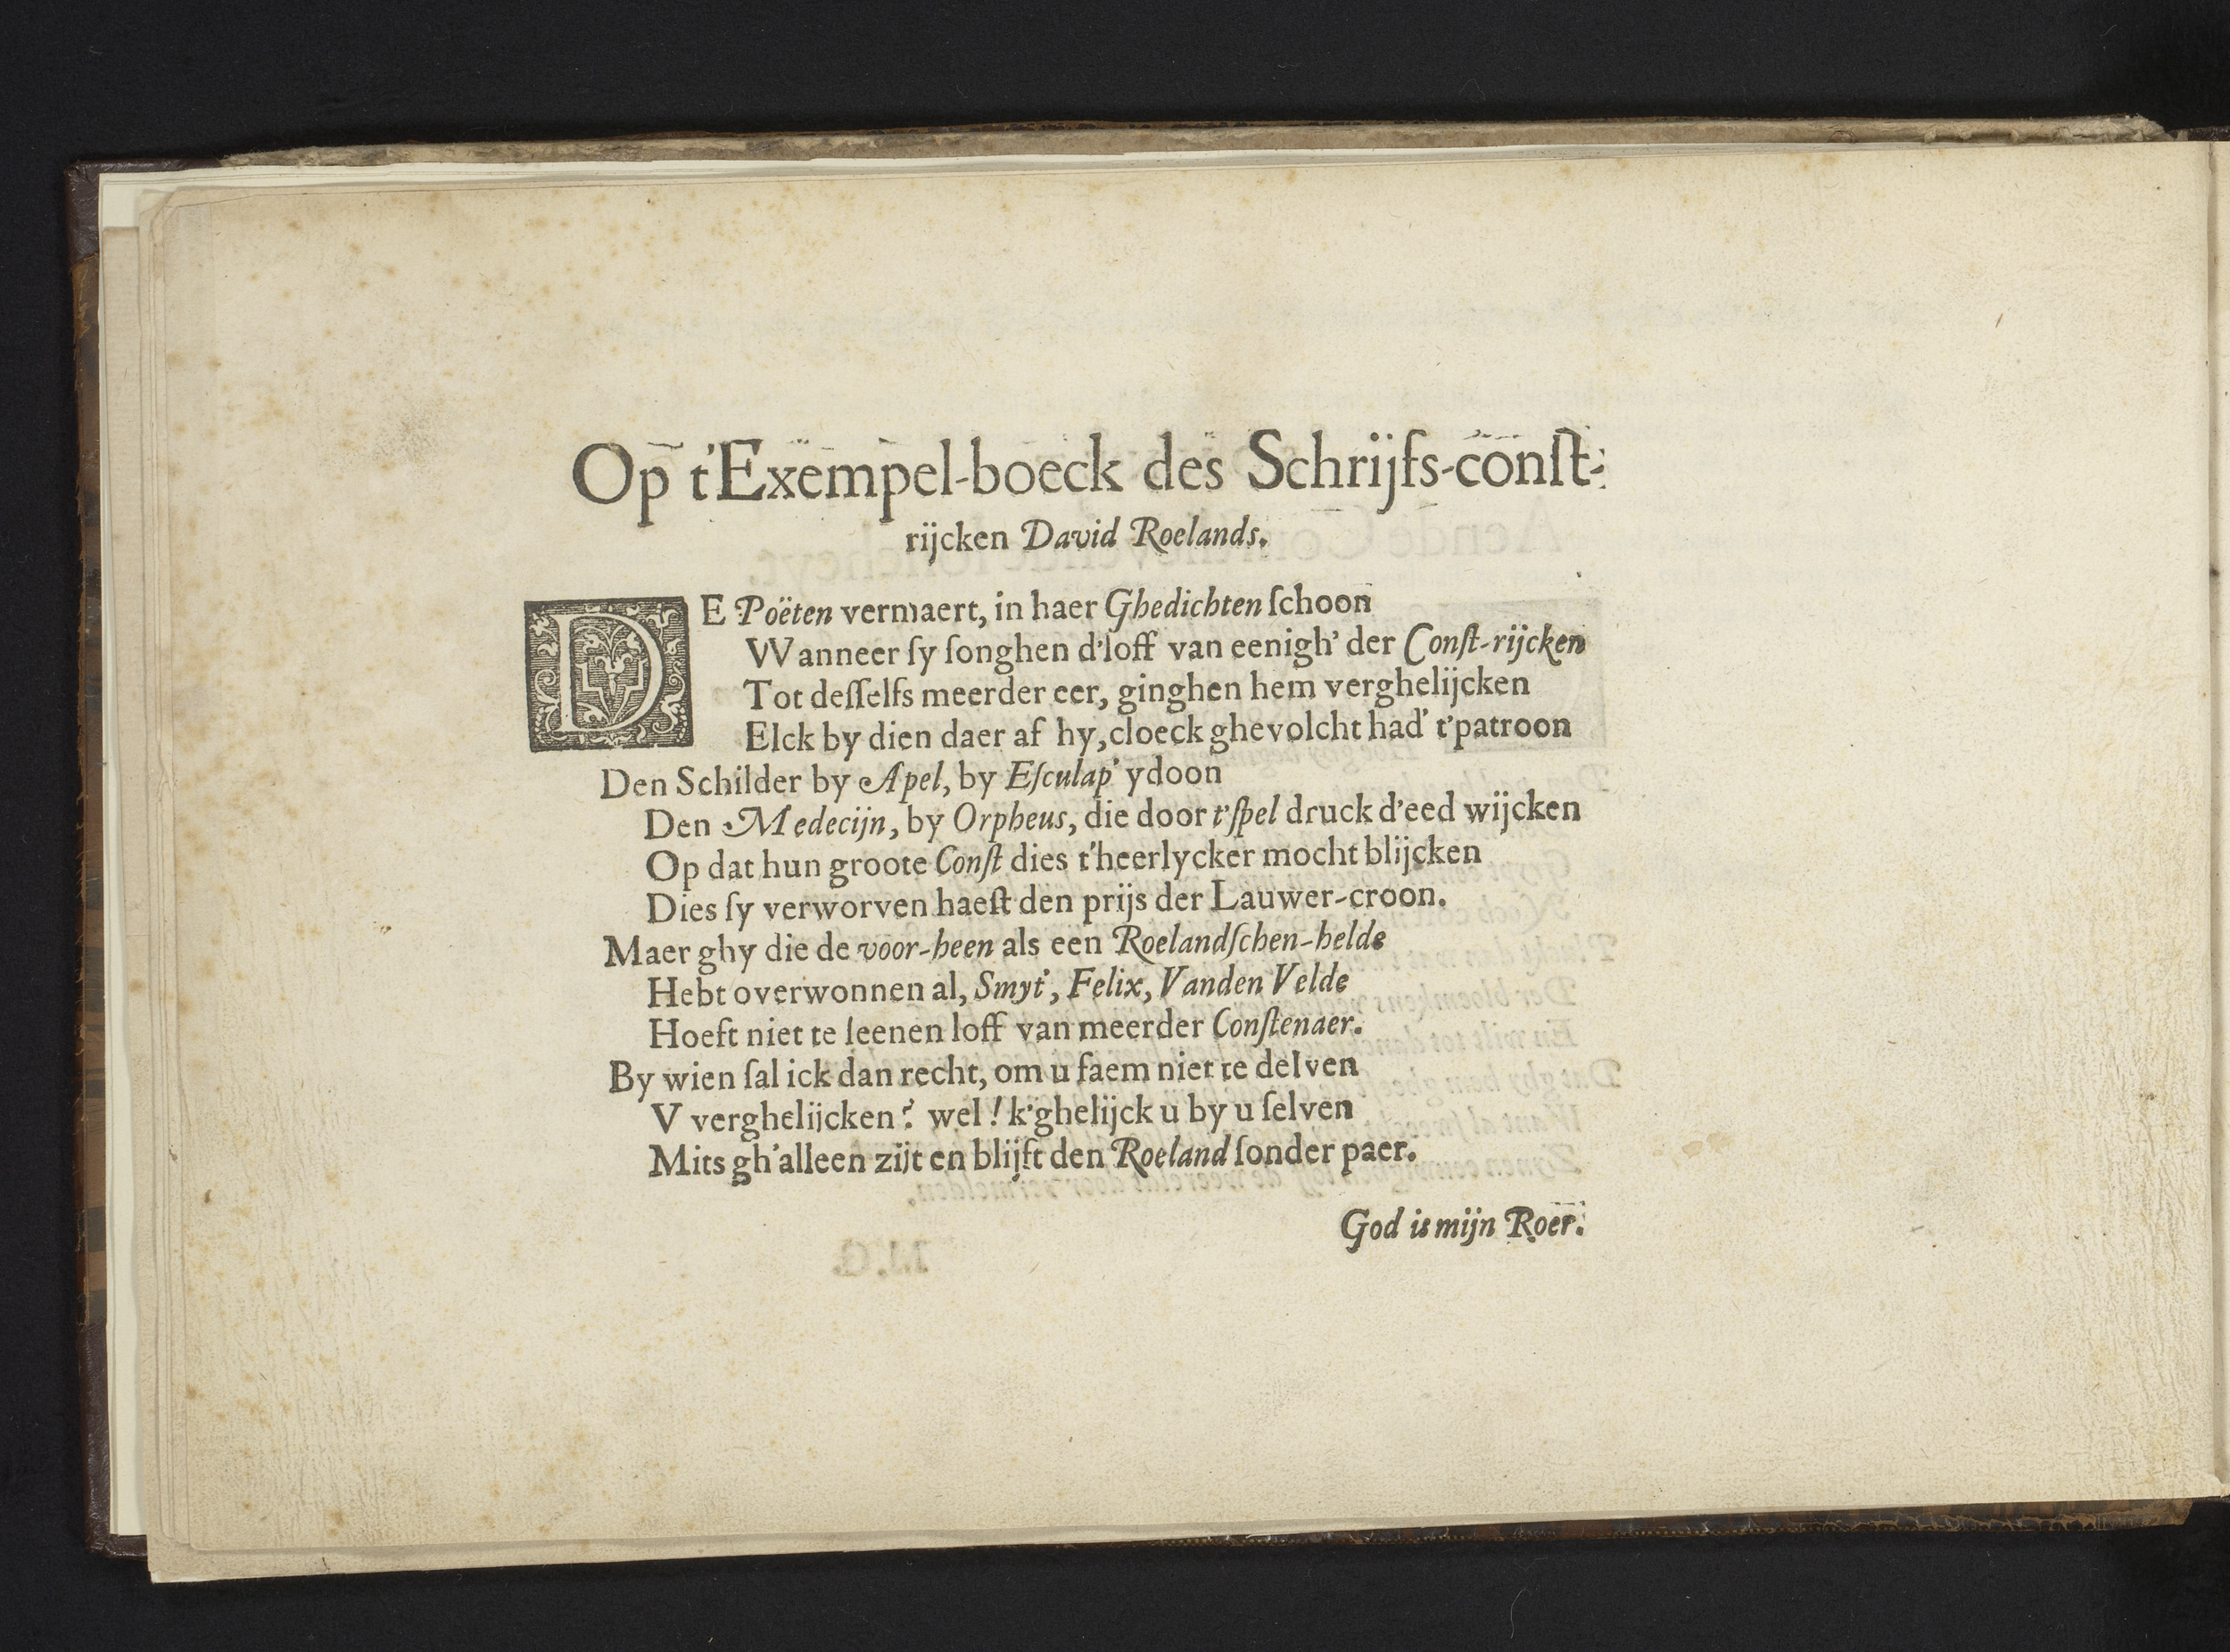 Op t'Exempel-boeck des Schrijfs-conſt-
rijcken David Roelands.
DE Poëten vermaert, in haer Ghedichten ſchoon
VVanneer ſy ſonghen d'loff van eenigh' der Conſt-rijcken
Tot deſſelfs meerder eer, ginghen hem verghelijcken
Elck by dien daer af hy, cloeck ghevolcht had' t'patroon
Den Schilder by Apel, by Eſculap' ydoon
Den Medecijn, by Orpheus, die door t'ſpel druck d'eed wijcken
Op dat hun groote Conſt dies t'heerlycker mocht blijcken
Dies ſy verworven haeſt den prijs der Lauwer-croon.
Maer ghy die de voor-heen als een Roelandſchen-helde
Hebt overwonnen al, Smyt', Felix, Vanden Velde
Hoeft niet te leenen loff van meerder Conſtenaer.
By wien ſal ick dan recht, om u faem niet te delven
V verghelijcken? wel! k'ghelijck u by u ſelven
Mits gh'alleen zijt en blijft den Roeland ſonder paer.
God is mijn Roer.